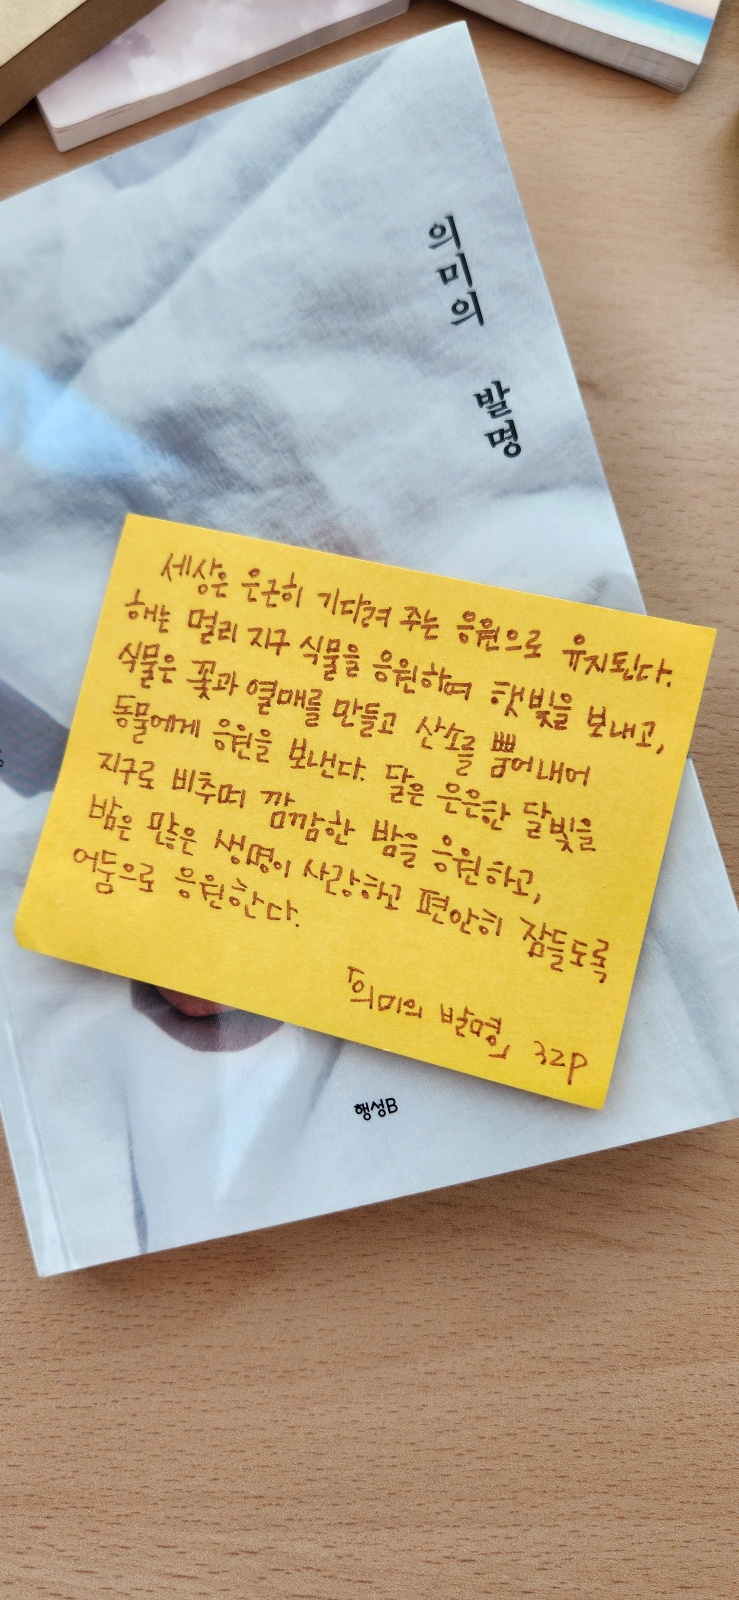 의미의 발명
세상은 은근히 기다려 주는 응원으로 유지된다.
해는 멀리 지구 식물을 응원하며 햇빛을 보내고,
식물은 꽃과 열매를 만들고 산소를 뿜어내어
동물에게 응원을 보낸다. 달은 은은한 달빛을
지구로 비추며 깜깜한 밤을 응원하고,
밤은 많은 생명이 사랑하고 편안히 잠들도록
어둠으로 응원한다.
「의미의 발명」 32p
행성B